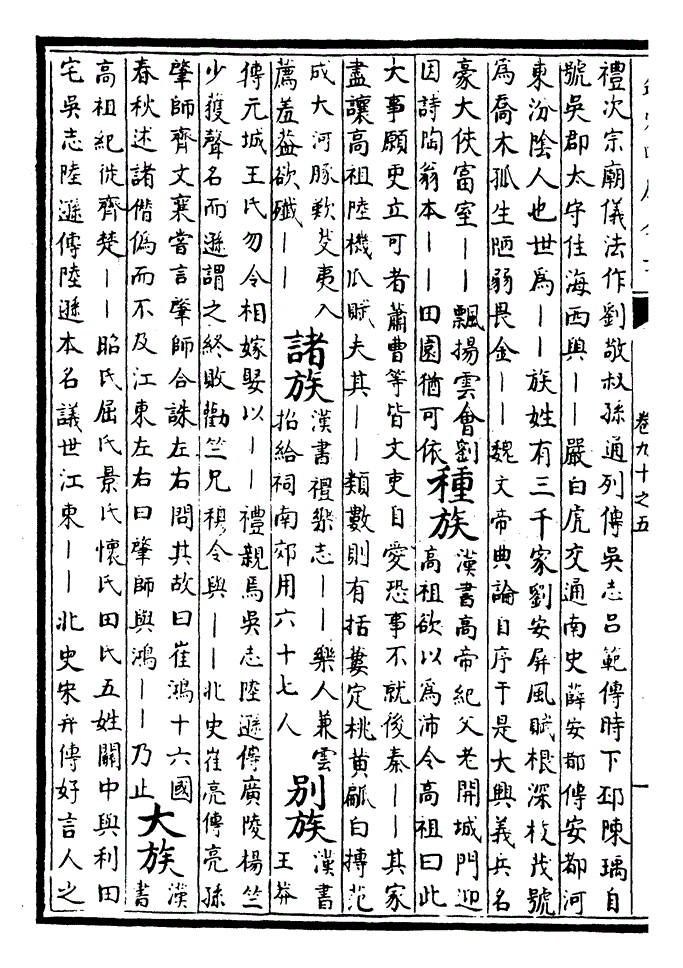 卷九十之五
一
禮次宗廟儀法作劉敬叔孫通列傳吳志呂範傳時下邳陳瑀自
號吳郡太守住海西與——嚴白虎交通南史薛安都傳安都河
東汾陰人也世爲——族姓有三千家劉安屏風賦根深枝茂號
爲喬木孤生陋弱畏金——魏文帝典論自序于是大興義兵名
豪大俠富室——飄揚雲會劉
因詩陶翁本——田園猶可依
種族
漢書高帝紀父老開城門迎
高祖欲以爲沛令高祖曰此
大事願更立可者蕭曹等皆文吏自愛恐事不就後秦——其家
盡讓高祖陸機瓜賦夫其——類數則有括蔞定桃黃㼐白摶范
成大河豚歎芟夷入
薦羞益欲殲——
諸族
漢書禮樂志——樂人兼雲
招給祠南郊用六十七人
別族
漢書
王莽
傳元城王氏勿令相嫁娶以——禮親焉吳志陸遜傳廣陵楊竺
少獲聲名而遜謂之終敗勸竺兄穆令與——北史崔亮傳亮孫
肇師齊文襄嘗言肇師合誅左右問其故曰崔鴻十六國
春秋述諸僭偽而不及江東左右曰肇師與鴻——乃止
大族
漢
書
高祖紀徙齊楚——昭氏屈氏景氏懷氏田氏五姓關中與利田
宅吳志陸遜傳陸遜本名議世江東——北史宋弁傳好言人之